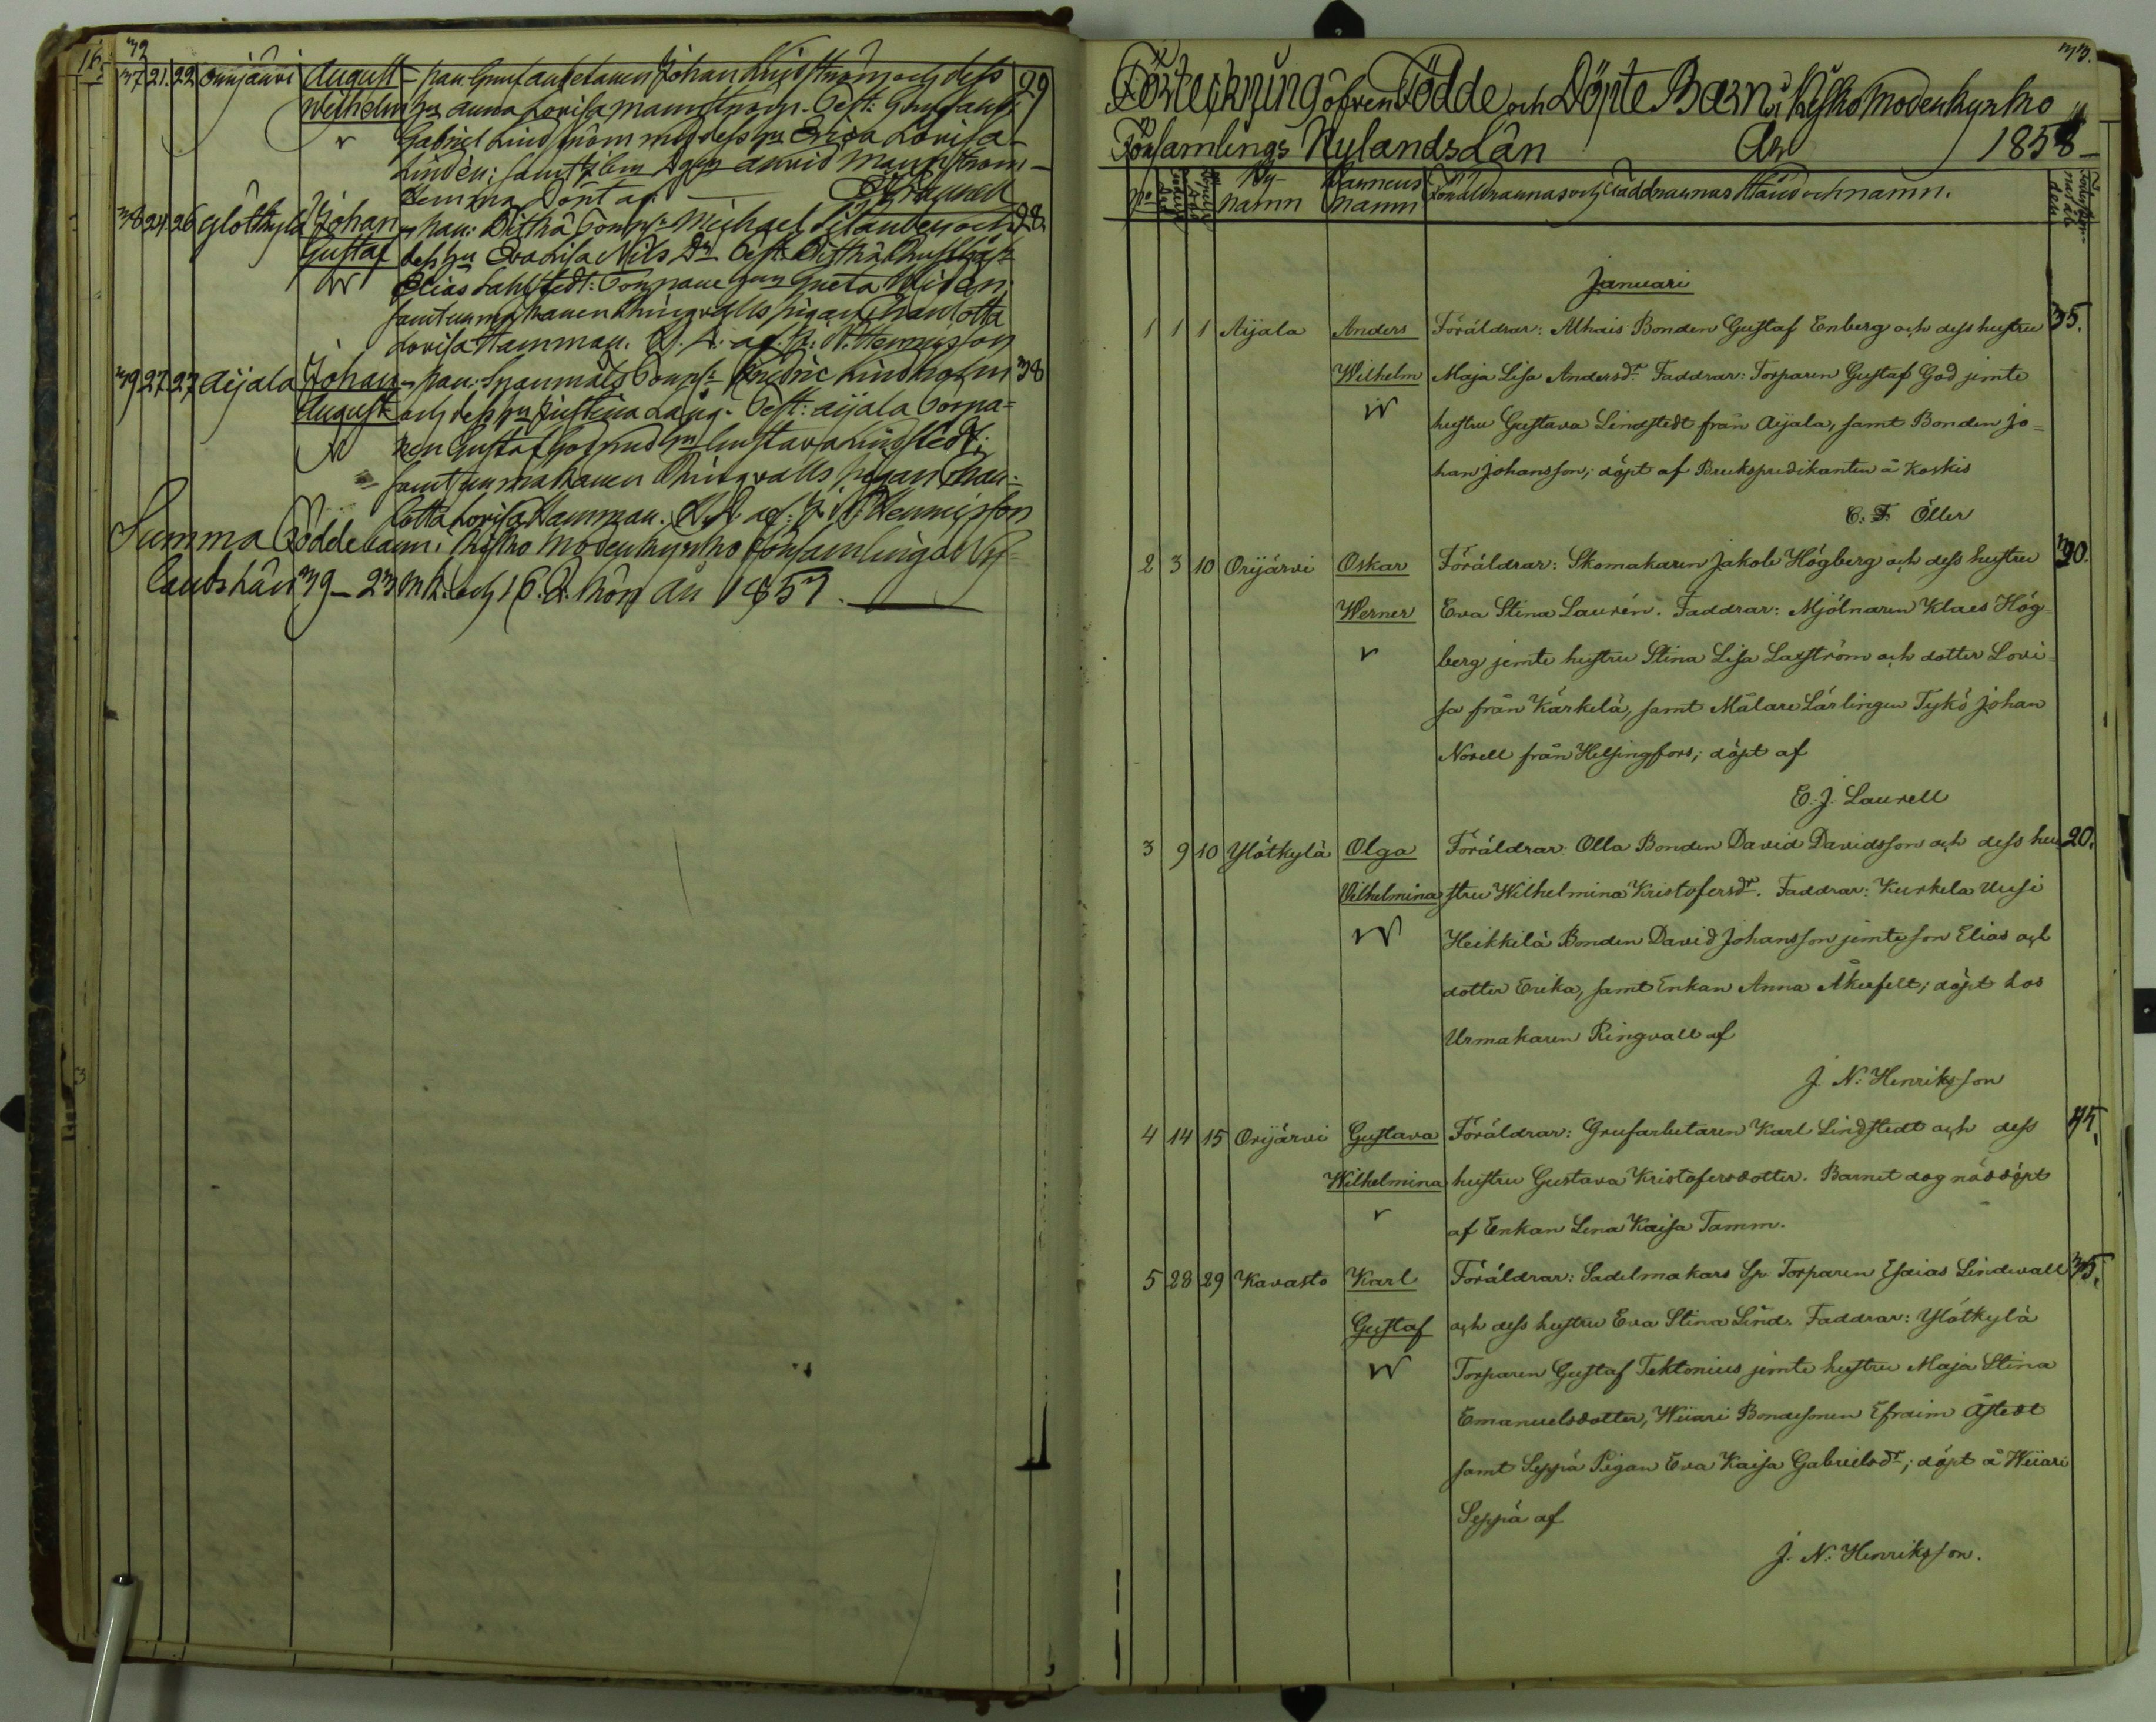 16. 32
37 21. 22 Orijärvi August par: Grufarbetaren Johan Lindström och dess 29
Wilhelm hu Anna Lovisa Manström. Test: Grufarb:
Gabriel Lindström med dess hu Erica Lovisa
Lindén; samt Arvid Manström
hemma Döpt af
38 24. 26 Ylötkylä Johan par: Dithå Torp: Michael och 28
Gustaf dess hu Eva Lisa Nils Dr Test. Dithå
Elias Sahlstedt: hu Greta Widén;
samt urmakaren Ringvalls pigan Charlotta
Lovisa Hamman. D. af J. N. Henrisson
39 27. 27 Aijala Johan par: Spanmåls Torp: Fredric Lindholm 38
August och dess hu Justina Lång. Test: Aijala Torpa=
ren Gustaf God med hu Gustava Lindstedt;
samt urmakaren Ringvalls pigan Char=
lotta Lovisa Hamman. D. af: J. N. Henrisson
Summa Födde barn i Kisko Moderkyrko församlings Ny=
lands Län 39 - 23 M.K. och 16. Q. Kön År 1857.
33.
Förteckning öfver Födde och Döpte Barn i Kisko Moderkyrko
Församlings Nylands Län År 1858
No By-namn Barnens namn Föräldrarnas och Faddrarnas Stånd och namn.
Januari
1 1 1 Aijala Anders Föräldrar: Alhais Bonden Gustaf Enberg och dess hustru 35.
Wilhelm Maja Lisa Andersdr. Faddrar: Torparen Gustaf God jemte
hustru Gustava Lindstedt från Aijala, samt Bonden Jo=
han Johansson; döpt af Brukspredikanten å Koskis
E. F. Öller
2 3 10 Orijärvi Oskar Föräldrar: Skomakaren Jakob Högberg och dess hustru 30.
Werner Eva Stina Laurén. Faddrar: Mjölnaren Klaes Hög=
berg jemte hustru Stina Lisa Laxström och dotter Lovi=
sa från Kärkelä, samt Målare Lärlingen Tykö Johan
Norell från Helsingfors; döpt af
E. J. Laurell
3 9 10 Ylötkylä Olga Föräldrar: Olla Bonden David Davidsson och dess hu= 20.
Vilhelmina stru Wilhelmina Kristofersdr. Faddrar: Kurkela Uusi
Heikkilä Bonden David Johansson jemte son Elias och
dotter Erika, samt Enkan Anna Åkerfelt; döpt hos
Urmakaren Ringvall af
J. N. Henriksson
4 14 15 Orijärvi Gustava Föräldrar: Grufarbetaren Karl Lindstedt och dess 45.
Wilhelmina hustru Gustava Kristofersdotter. Barnet dog nöddöpt
af Enkan Lena Kaisa Tamm.
5 28 29 Kavasto Karl Föräldrar: Sadelmakars Sp. Torparen Esaias Lindevall 35.
Gustaf och dess hustru Eva Stina Lind. Faddrar: Ylötkylä
Torparen Gustaf Tektonius jemte hustru Maja Stina
Emanuelsdotter, Wiiari Bondesonen Efraim Åstedt
samt Seppä Pigan Eva Kaisa Gabrielsdr; döpt å Wiiari
Seppä af
J. N. Henriksson.